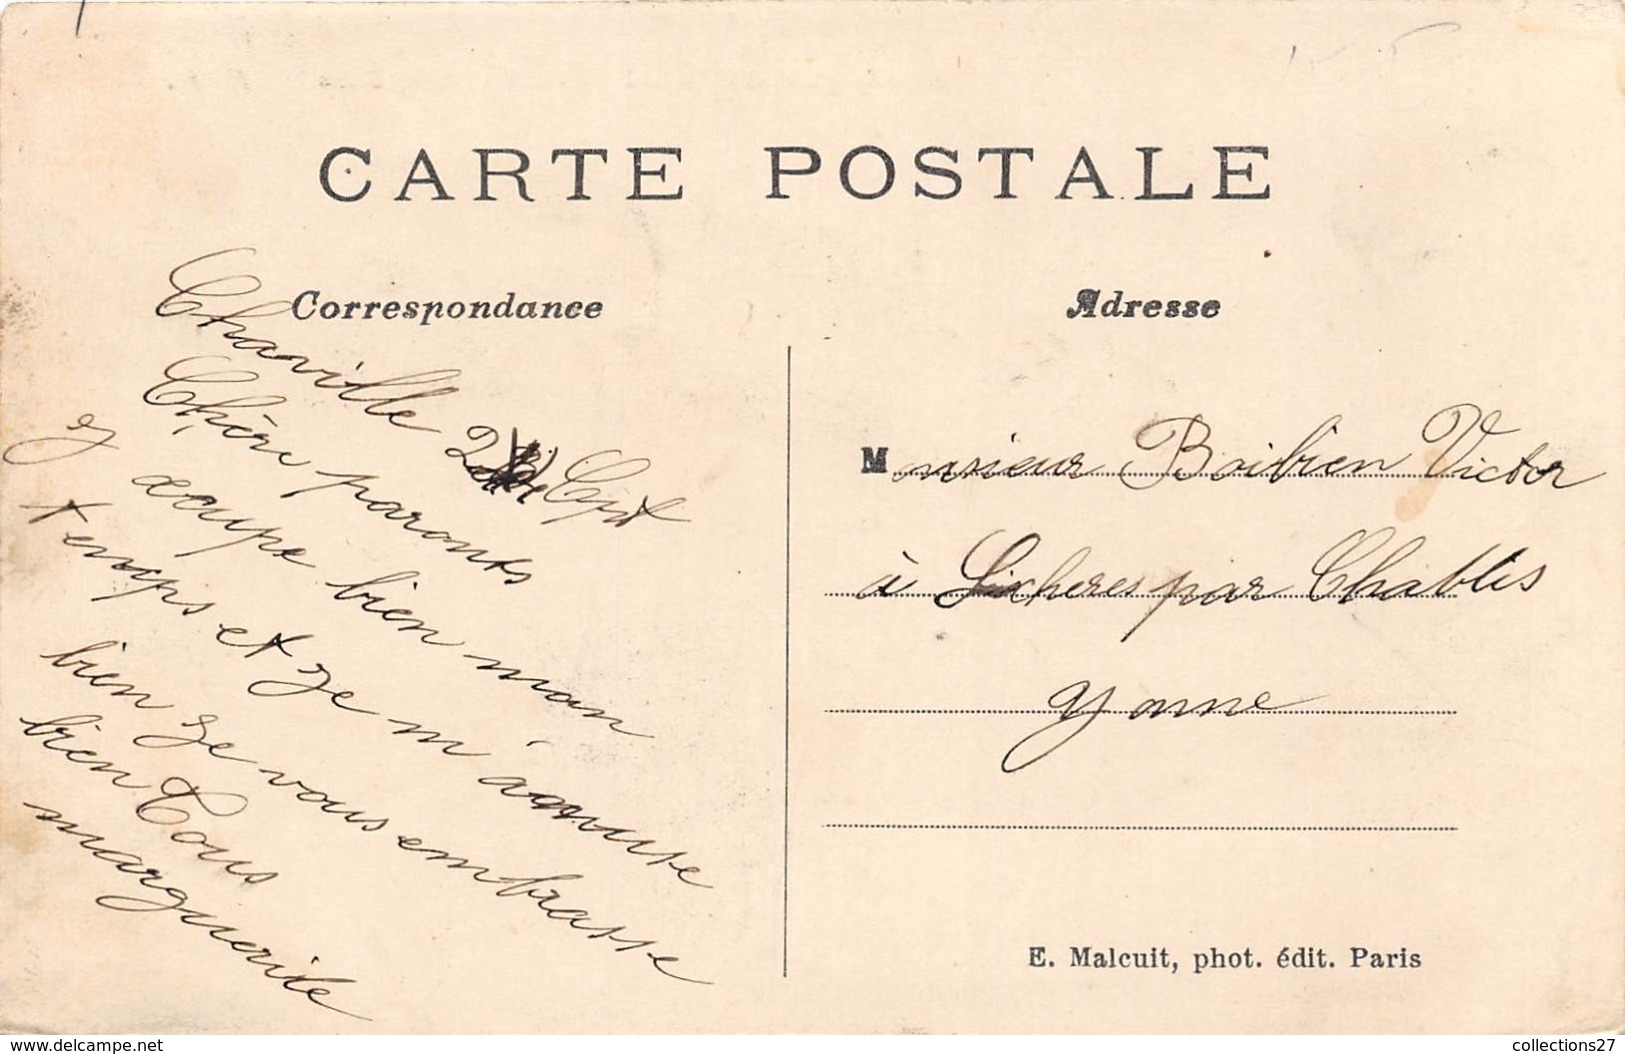 CARTE POSTALE
Correspondance
Adresse
Chaville 2 Sept
Chère parants
J occupe bien mon
temps et Je m'amuse
bien Je vous embrasse
bien Tous
marguerite
Monsieur Boibien Victor
à Licheres par Chablis
Yonne
E. Malcuit, phot. édit. Paris
www.delcampe.net
collections27